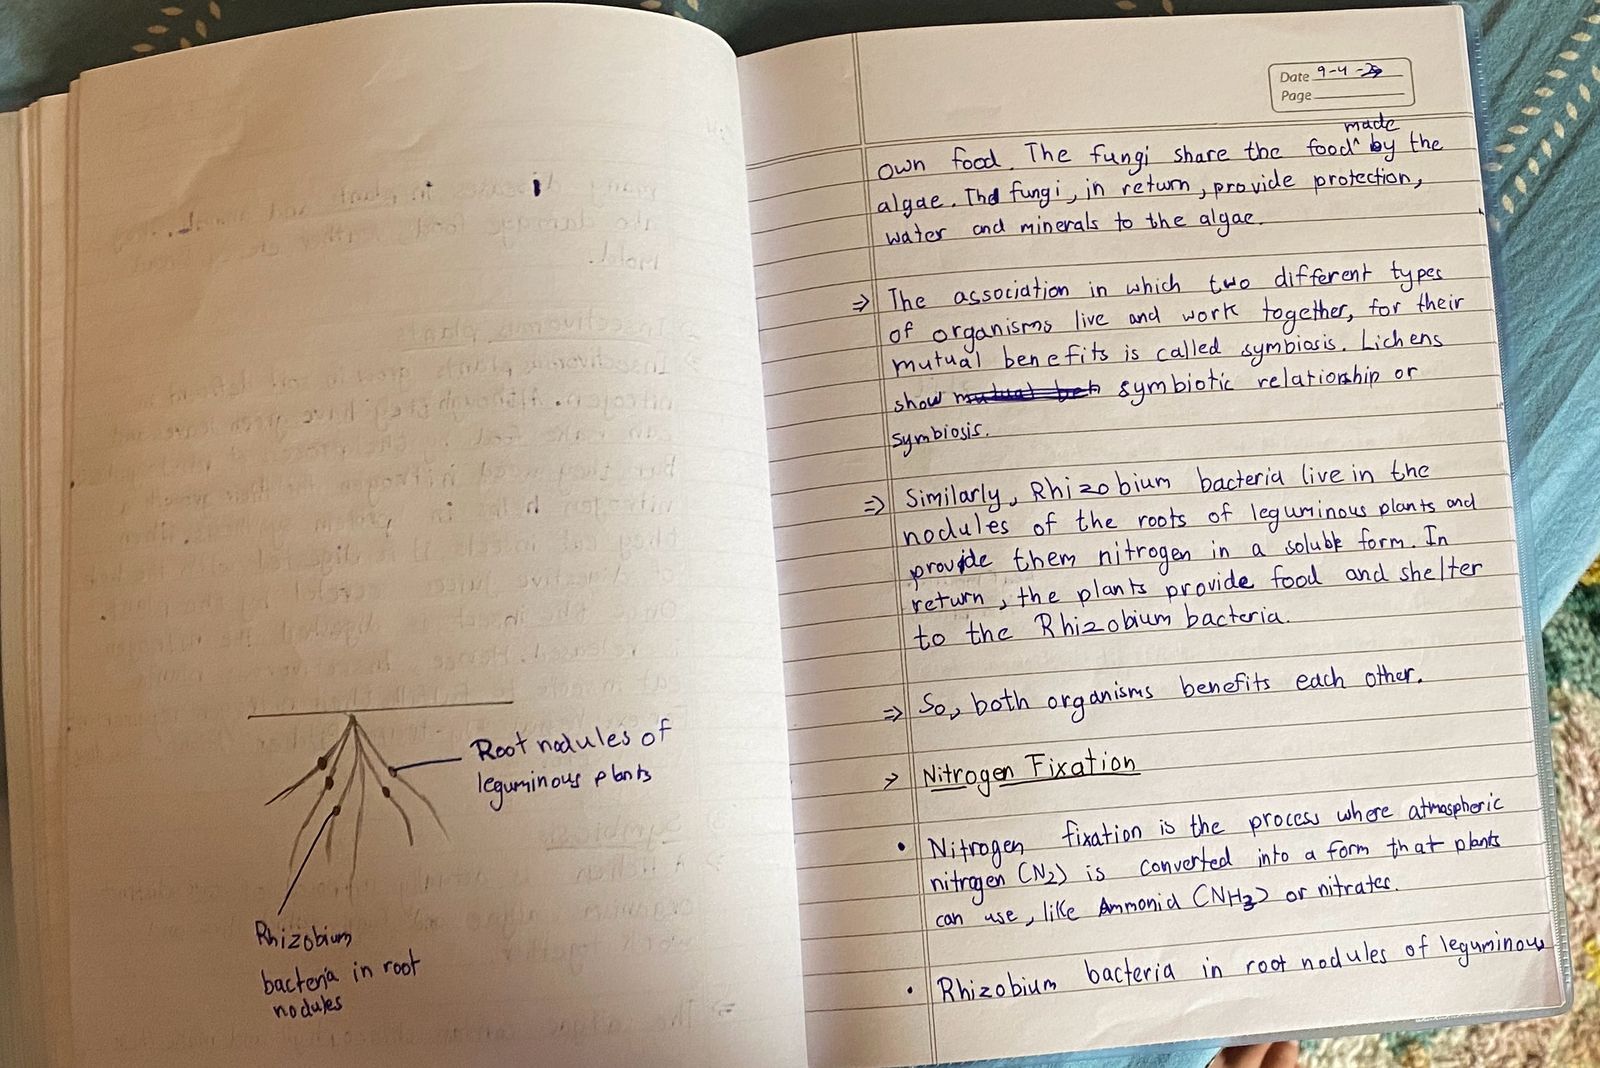 Root nodules of
leguminous plants
Rhizobium
bacteria in root
nodules
Date 9-4-
Page
made
own food. The fungi share the food^ by the
algae. The fungi, in return, provide protection,
water and minerals to the algae.
⇒ The association in which two different types
of organisms live and work together, for their
mutual benefits is called symbiosis. Lichens
show symbiotic relationship or
symbiosis.
⇒ Similarly, Rhizobium bacteria live in the
nodules of the roots of leguminous plants and
provide them nitrogen in a soluble form. In
return, the plants provide food and shelter
to the Rhizobium bacteria.
⇒ So, both organisms benefits each other.
> Nitrogen Fixation
• Nitrogen fixation is the process where atmospheric
nitrogen (N2) is converted into a form that plants
can use, like Ammonid (NH3) or nitrates.
• Rhizobium bacteria in root nodules of leguminous